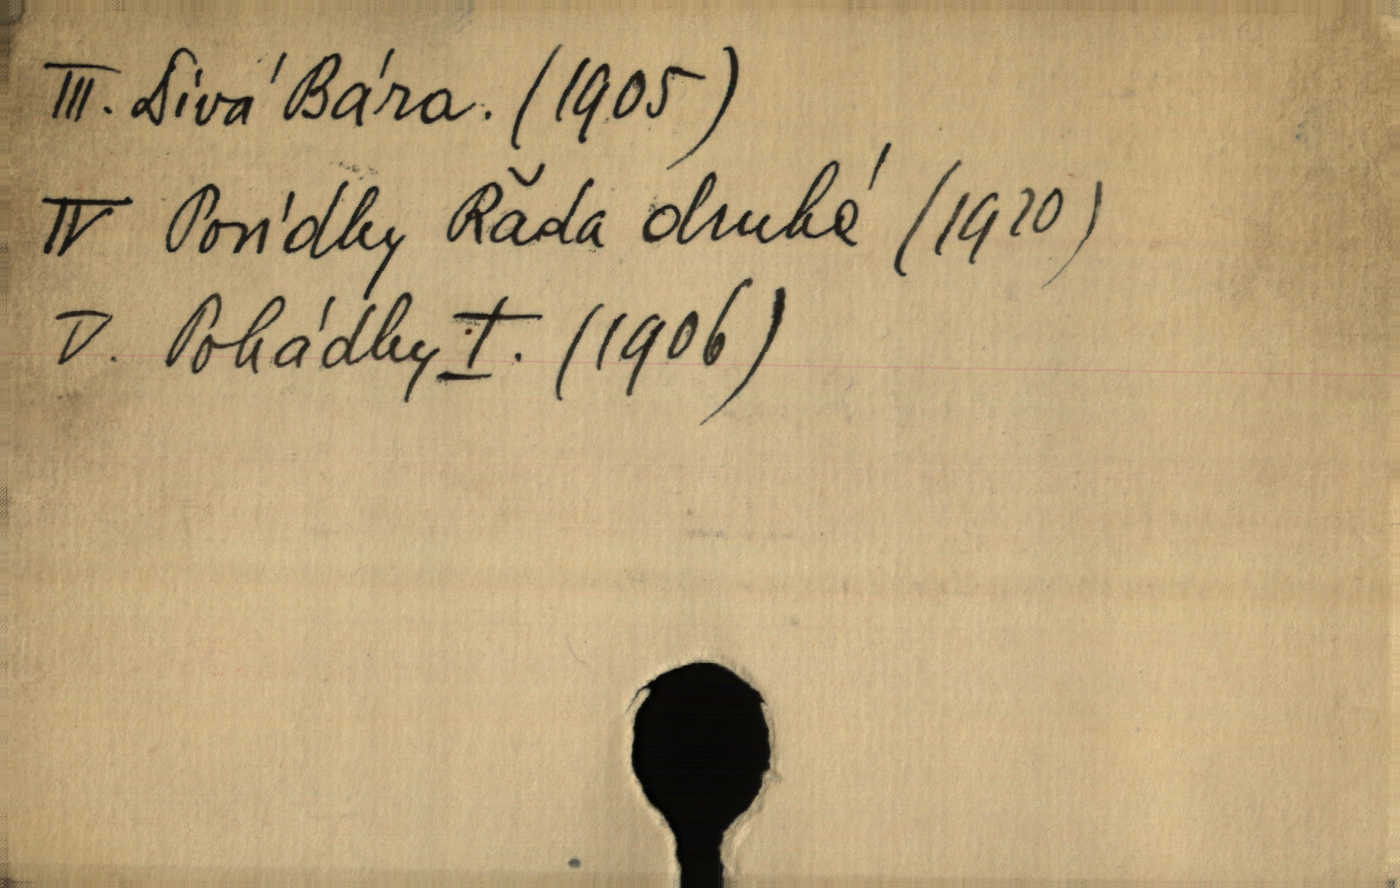 III. Divá Bára. (1905)
IV Povídky Řada druhá (1920)
V. Pohádky I. (1906)